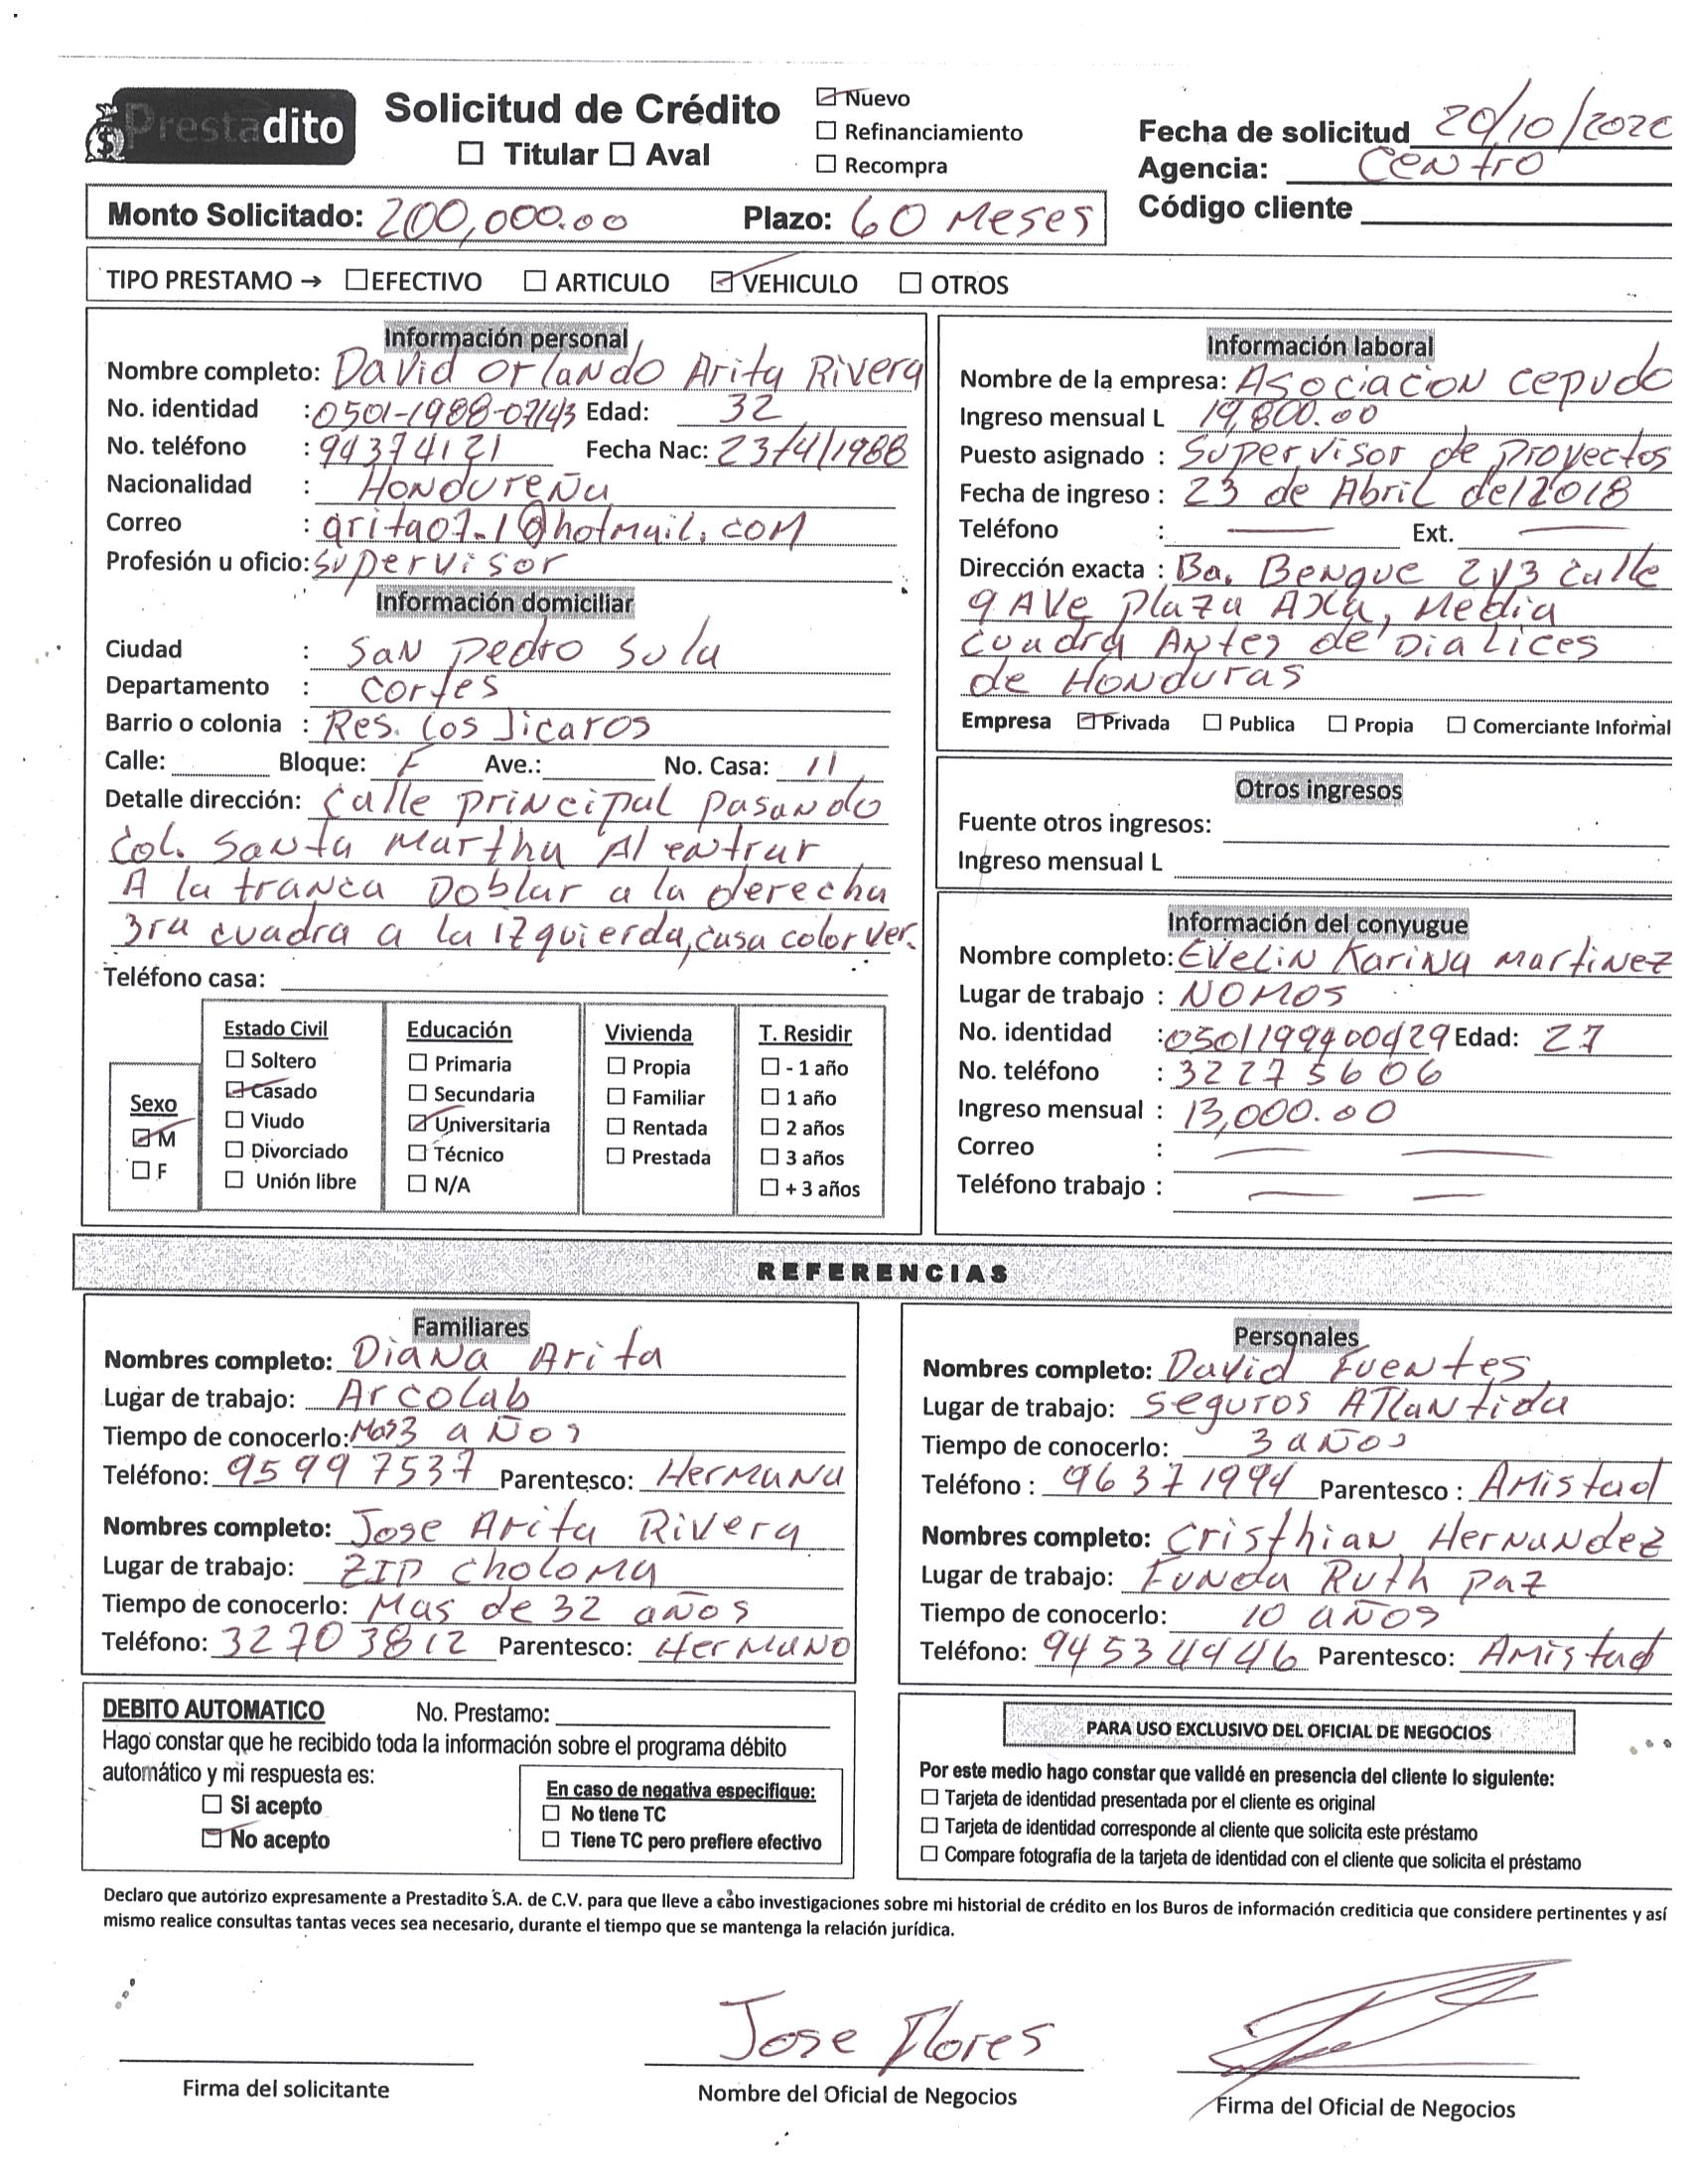 Prestadito
Solicitud de Crédito
☐ Titular ☐ Aval
☑ Nuevo
☐ Refinanciamiento
☐ Recompra
Fecha de solicitud 20/10/2020
Agencia: Centro
Código cliente
Monto Solicitado: 200,000.00 Plazo: 60 Meses
TIPO PRESTAMO → ☐ EFECTIVO ☐ ARTICULO ☑ VEHICULO ☐ OTROS
Información personal
Nombre completo: David Orlando Arita Rivera
No. identidad : 0501-1988-07143 Edad: 32
No. teléfono : 94374121 Fecha Nac: 23/4/1988
Nacionalidad : Hondureña
Correo : arita07.1@hotmail.com
Profesión u oficio: Supervisor
Información domiciliar
Ciudad : San Pedro Sula
Departamento : Cortes
Barrio o colonia : Res. Los Jicaros
Calle: Bloque: F Ave.: No. Casa: 11
Detalle dirección: Calle principal pasando
Col. Santa Martha Al entrar
A la tranca Doblar a la derecha
3ra cuadra a la izquierda, casa color ver.
Teléfono casa:
Sexo
☑ M
☐ F
Estado Civil
☐ Soltero
☑ Casado
☐ Viudo
☐ Divorciado
☐ Unión libre
Educación
☐ Primaria
☐ Secundaria
☑ Universitaria
☐ Técnico
☐ N/A
Vivienda
☐ Propia
☐ Familiar
☐ Rentada
☐ Prestada
T. Residir
☐ - 1 año
☐ 1 año
☐ 2 años
☐ 3 años
☐ + 3 años
Información laboral
Nombre de la empresa: Asociacion Cepudo
Ingreso mensual L 19,800.00
Puesto asignado : Supervisor de Proyectos
Fecha de ingreso : 23 de Abril del 2018
Teléfono : — Ext. —
Dirección exacta : Ba. Benque 2y3 Calle
9 AVe Plaza AXa, Media
Cuadra Antes de Dialices
de Honduras
Empresa ☑ Privada ☐ Publica ☐ Propia ☐ Comerciante Informal
Otros ingresos
Fuente otros ingresos:
Ingreso mensual L
Información del conyugue
Nombre completo: Evelin Karina Martinez
Lugar de trabajo : NOMOS
No. identidad : 0501199400429 Edad: 27
No. teléfono : 32275606
Ingreso mensual : 13,000.00
Correo : — —
Teléfono trabajo : — —
REFERENCIAS
Familiares
Nombres completo: Diana Arita
Lugar de trabajo: Arcolab
Tiempo de conocerlo: Mas3 años
Teléfono: 95997537 Parentesco: Hermana
Nombres completo: Jose Arita Rivera
Lugar de trabajo: ZIP Choloma
Tiempo de conocerlo: Mas de 32 años
Teléfono: 32703812 Parentesco: Hermano
Personales
Nombres completo: David Fuentes
Lugar de trabajo: Seguros ATlantida
Tiempo de conocerlo: 3 años
Teléfono : 96371994 Parentesco : Amistad
Nombres completo: Cristhian Hernandez
Lugar de trabajo: Funda Ruth Paz
Tiempo de conocerlo: 10 años
Teléfono: 94534946 Parentesco: Amistad
DEBITO AUTOMATICO No. Prestamo:
Hago constar que he recibido toda la información sobre el programa débito
automático y mi respuesta es:
☐ Si acepto
☑ No acepto
En caso de negativa especifique:
☐ No tiene TC
☐ Tiene TC pero prefiere efectivo
PARA USO EXCLUSIVO DEL OFICIAL DE NEGOCIOS
Por este medio hago constar que validé en presencia del cliente lo siguiente:
☐ Tarjeta de identidad presentada por el cliente es original
☐ Tarjeta de identidad corresponde al cliente que solicita este préstamo
☐ Compare fotografía de la tarjeta de identidad con el cliente que solicita el préstamo
Declaro que autorizo expresamente a Prestadito S.A. de C.V. para que lleve a cabo investigaciones sobre mi historial de crédito en los Buros de información crediticia que considere pertinentes y así
mismo realice consultas tantas veces sea necesario, durante el tiempo que se mantenga la relación jurídica.
Jose Flores
Firma del solicitante
Nombre del Oficial de Negocios
Firma del Oficial de Negocios